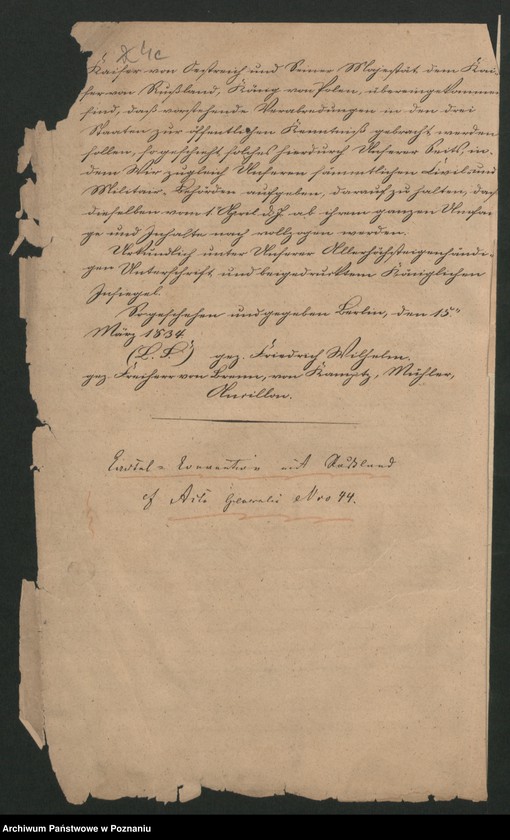 4c
Kaiser von Oestreich und Seiner Majestät dem Kai-
ser von Rußland, König von Polen, übereingekommen
sind, daß vorstehende Verabredungen in den drei
Staaten zur öffentlichen Kenntniß gebracht werden
sollen, so geschieht solches hierdurch Unserer Seits, in-
dem Wir zugleich Unseren sämmtlichen Civil- und
Militair-Behörden aufgeben, darauf zu halten, daß
dieselben vom 1. April d. J. ab ihrem ganzen Umfan-
ge und Inhalte nach vollzogen werden.
Urkundlich unter Unserer Allerhöchsteigenhändi-
gen Unterschrift und beigedrucktem Königlichen
Insiegel.
So geschehen und gegeben Berlin, den 15ten
März 1834.
(L. S.) gez. Friedrich Wilhelm.
gez. Freiherr von Brenn, von Kamptz, Mühler,
Ancillon.
Cartel-Convention mit Rußland
cf Acta Generalia Nro 44.
Archiwum Państwowe w Poznaniu